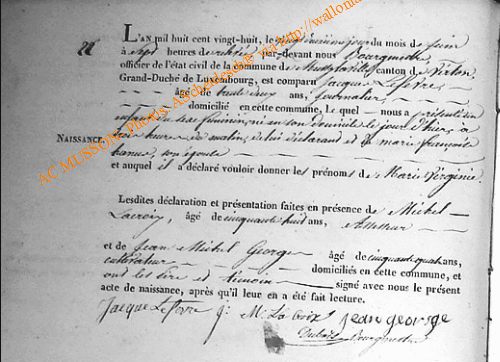 L'AN mil huit cent vingt-huit, le jour du mois de juin
à sept heures de relevée par-devant nous Bourguignon
officier de l'état civil de la commune de canton de Virton,
Grand-Duché de Luxembourg, est comparu Jacque Lefevre,
âgé de trente deux ans, journalier,
domicilié en cette commune, Lequel nous a présenté un
enfant du sexe féminin, né en son domicile le jour d'hier, à
NAISSANCE. heures du matin, de lui déclarant et de marie françoise
son épouse
et auquel il a déclaré vouloir donner les prénoms de Marie Virginie.
Lesdites déclaration et présentation faites en présence de Michel
Lacroix, âgé de cinquante huit ans,
et de Jean Michel George âgé de cinquante quatre ans,
cultivateur domiciliés en cette commune, et
ont les père et témoins signé avec nous le présent
acte de naissance, après qu'il leur en a été fait lecture.
Jacque Lefevre J: M: La Croix jean george
AC MUSSON Photos Archives http://wallonia